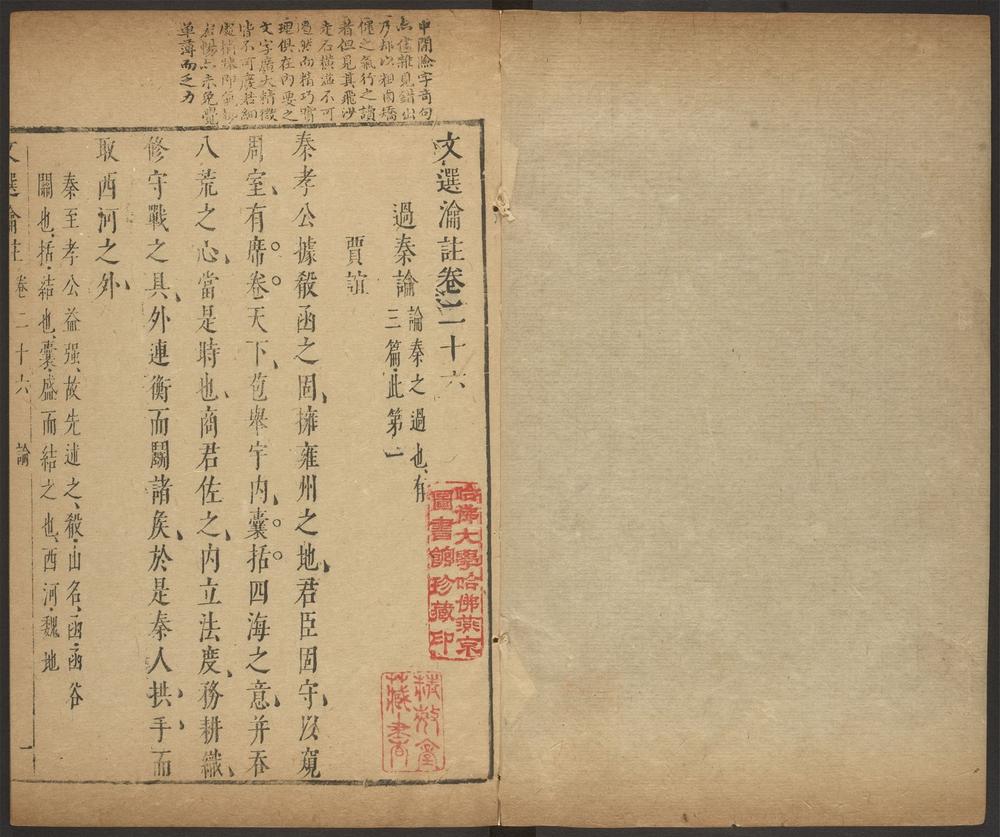 中間險字奇句
亦儘雜見錯出
乃却以粗鹵矯
健之氣行之讀
者但見其飛沙
走石橫溢不可
遏然而精巧實
理俱在內要之
文字廣大精微
皆不可廢若細
處情悚即氣
亦未免覺
單薄而乏力
文選瀹註卷二十六
過秦論 論秦之過也有
三篇此第一
賈誼
秦孝公據殽函之固擁雍州之地君臣固守以窺
周室有席卷天下苞舉宇內囊括四海之意并吞
八荒之心當是時也商君佐之內立法度務耕織
修守戰之具外連衡而鬬諸侯於是秦人拱手而
取西河之外
秦至孝公益强故先述之殽山名函函谷
關也括結也囊盛而結之也西河魏地
文選瀹註 卷二十六 論 一
哈佛大學哈佛燕京
圖書館珍藏印
藏書